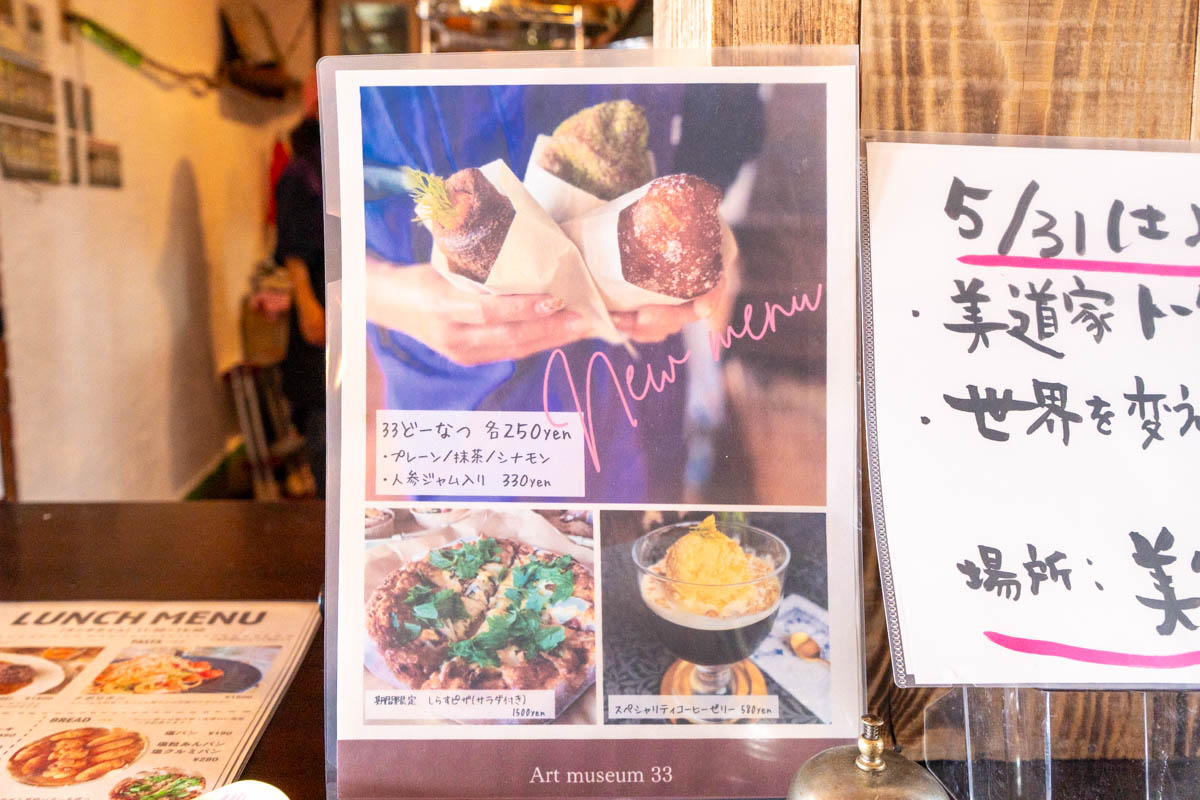 New menu
33どーなつ 各250yen
・プレーン/抹茶/シナモン
・人参ジャム入り 330yen
期間限定 しらすピザ(サラダ付き)
1500yen
スペシャリティコーヒーゼリー 580yen
Art museum 33
5/31(土)
・美道家 トー
・世界を変え
場所: 美
LUNCH MENU
PASTA
BREAD
塩パン ¥190
塩粒あんパン
塩クルミパン
¥280